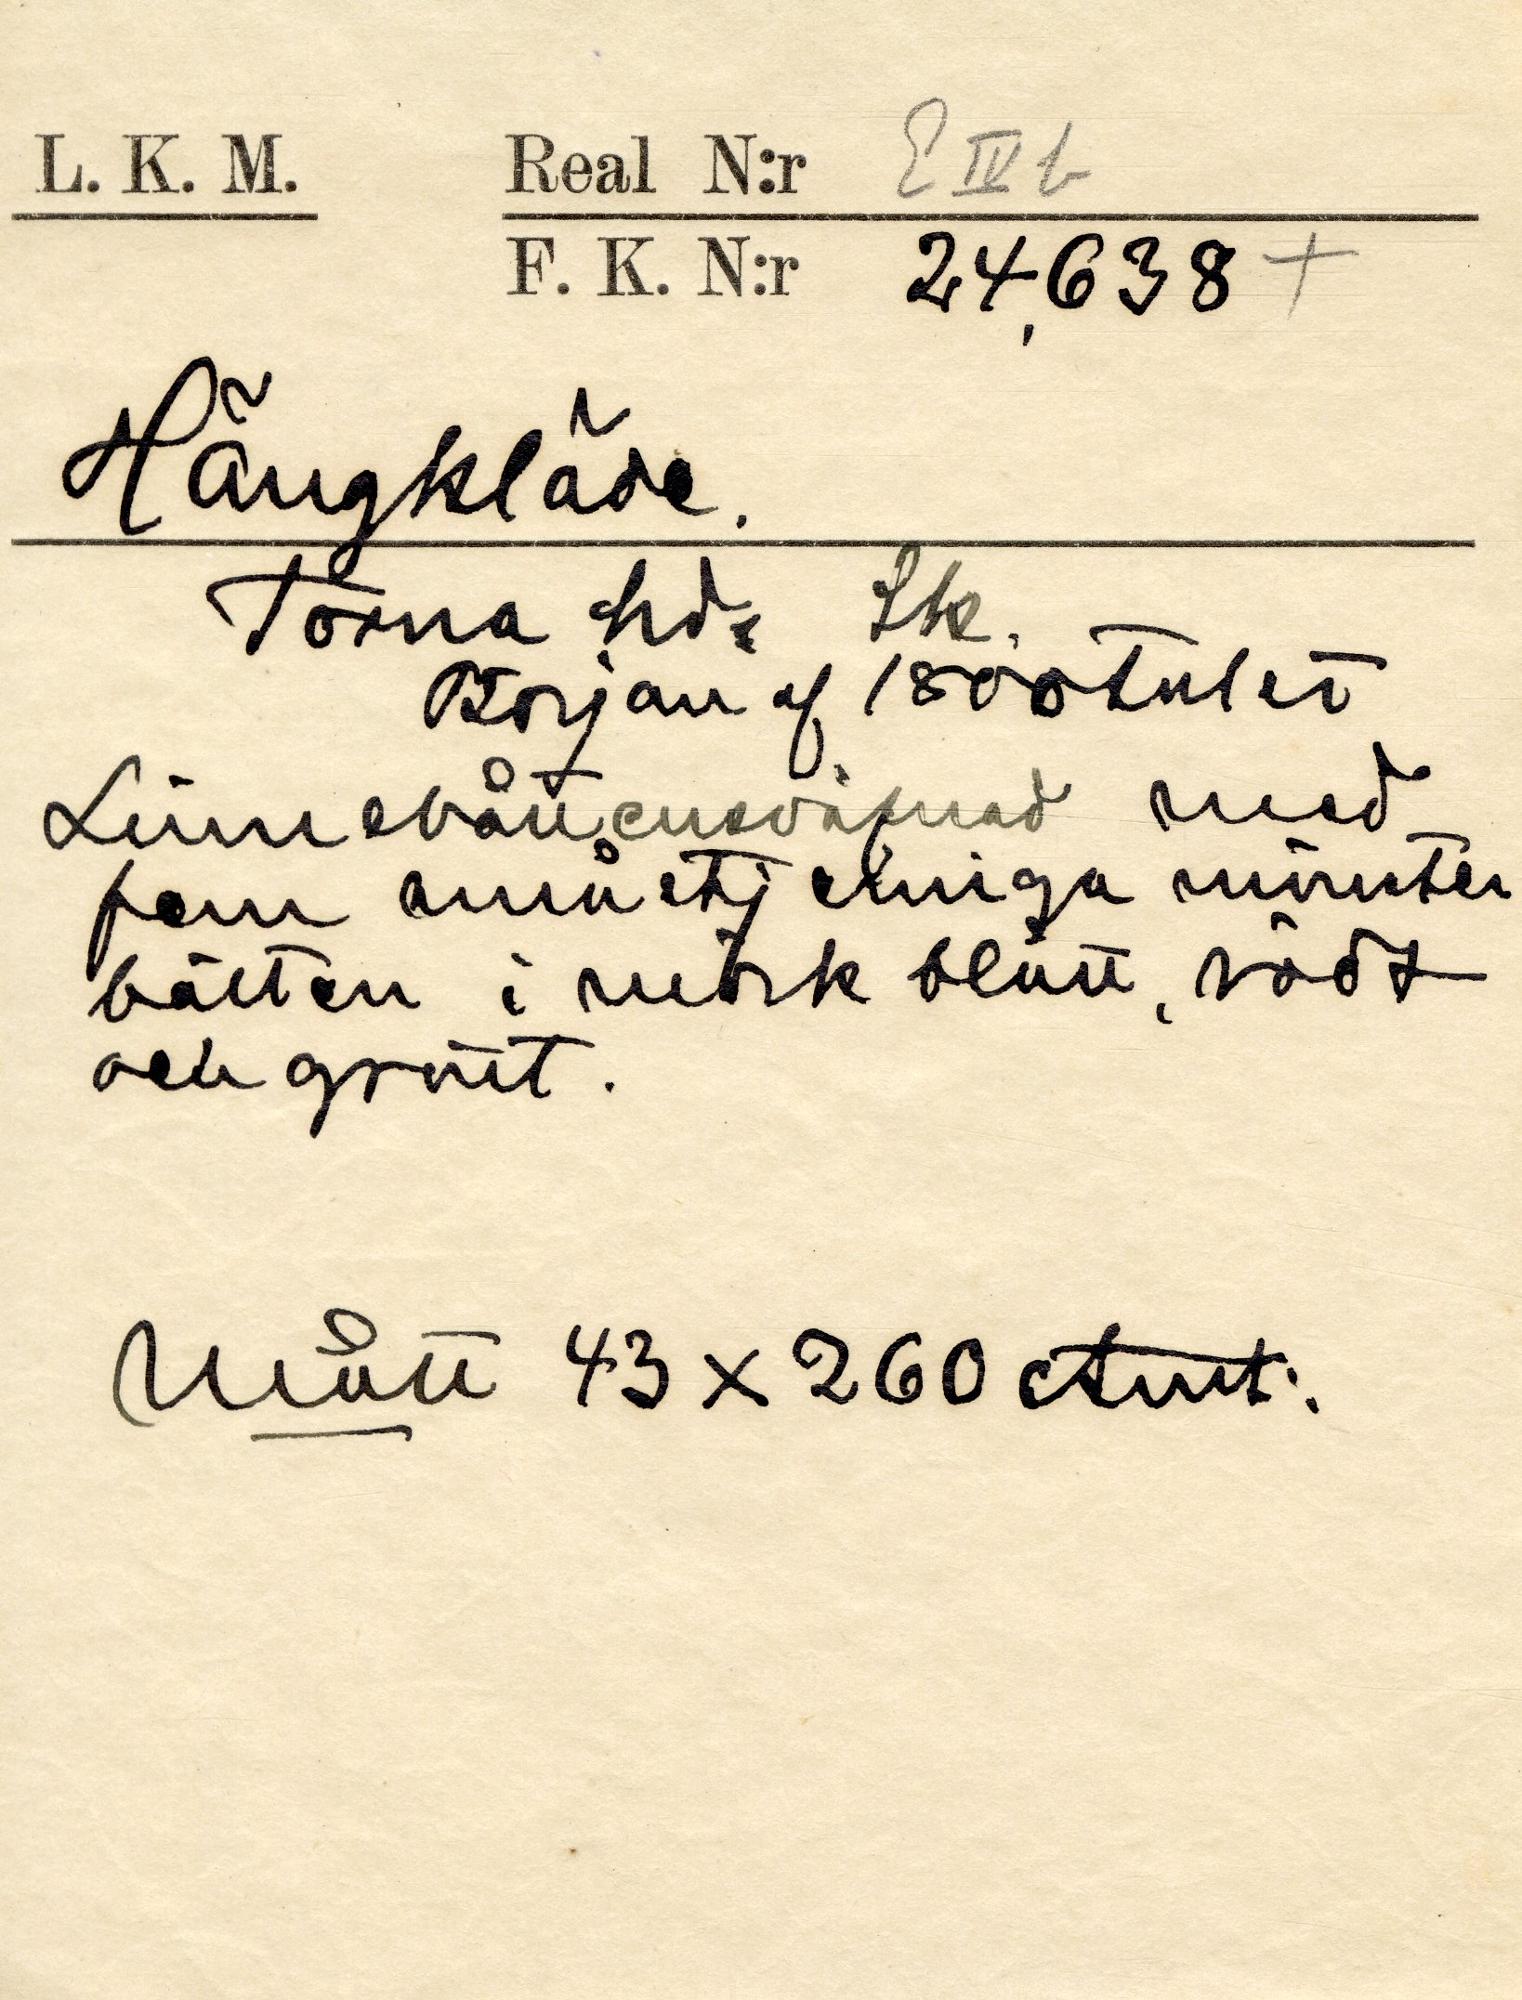 L. K. M. Real N:r E IV b
F. K. N:r 24,638 +
Hängkläde.
Torna hd. Sk.
Början af 1800talet
Linne med
fem små stjerniga mönster
bälten i mörk blått, rödt
och grönt.
Mått 43 x 260 ctmt.